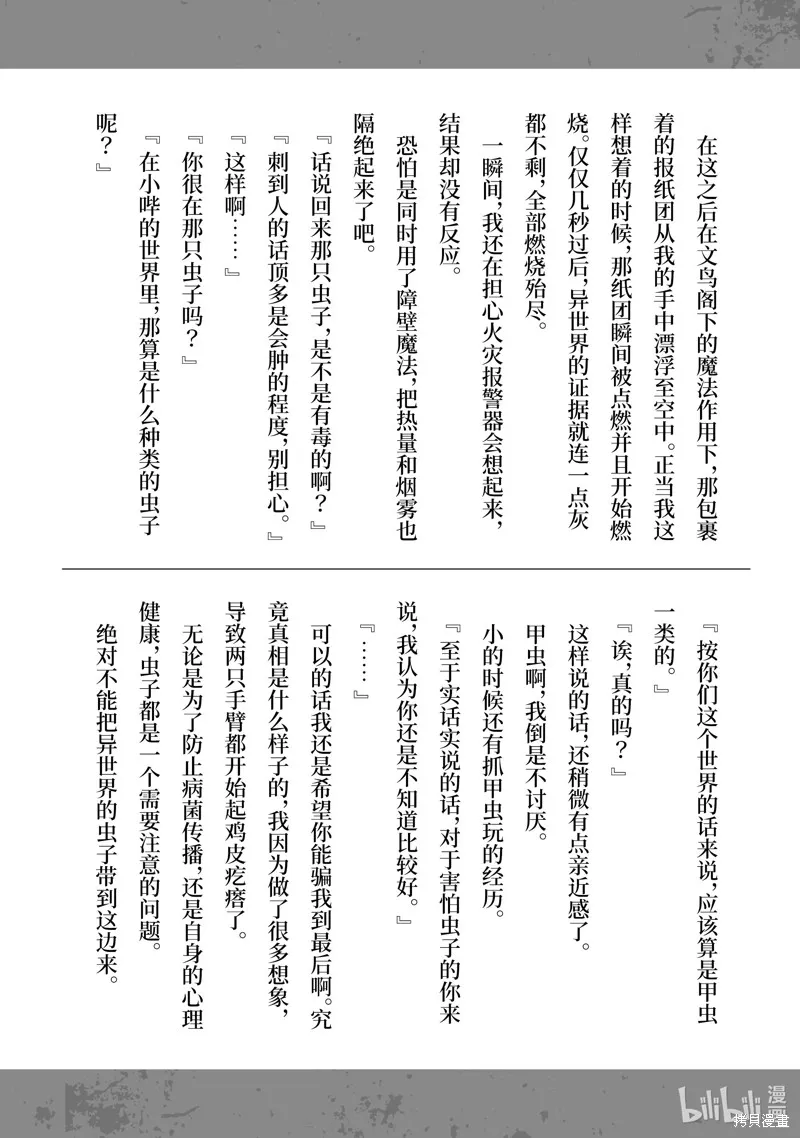 在这之后在文鸟阁下的魔法作用下，那包裹
着的报纸团从我的手中漂浮至空中。正当我这
样想着的时候，那纸团瞬间被点燃并且开始燃
烧。仅仅几秒过后，异世界的证据就连一点灰
都不剩，全部燃烧殆尽。
一瞬间，我还在担心火灾报警器会想起来，
结果却没有反应。
恐怕是同时用了障壁魔法，把热量和烟雾也
隔绝起来了吧。
『话说回来那只虫子，是不是有毒的啊？』
『刺到人的话顶多是会肿的程度，别担心。』
『这样啊……』
『你很在那只虫子吗？』
『在小哔的世界里，那算是什么种类的虫子
呢？』
『按你们这个世界的话来说，应该算是甲虫
一类的。』
『诶，真的吗？』
这样说的话，还稍微有点亲近感了。
甲虫啊，我倒是不讨厌。
小的时候还有抓甲虫玩的经历。
『至于实话实说的话，对于害怕虫子的你来
说，我认为你还是不知道比较好。』
『……』
可以的话我还是希望你能骗我到最后啊。究
竟真相是什么样子的，我因为做了很多想象，
导致两只手臂都开始起鸡皮疙瘩了。
无论是为了防止病菌传播，还是自身的心理
健康，虫子都是一个需要注意的问题。
绝对不能把异世界的虫子带到这边来。
bilibili 漫画
拷贝漫畫